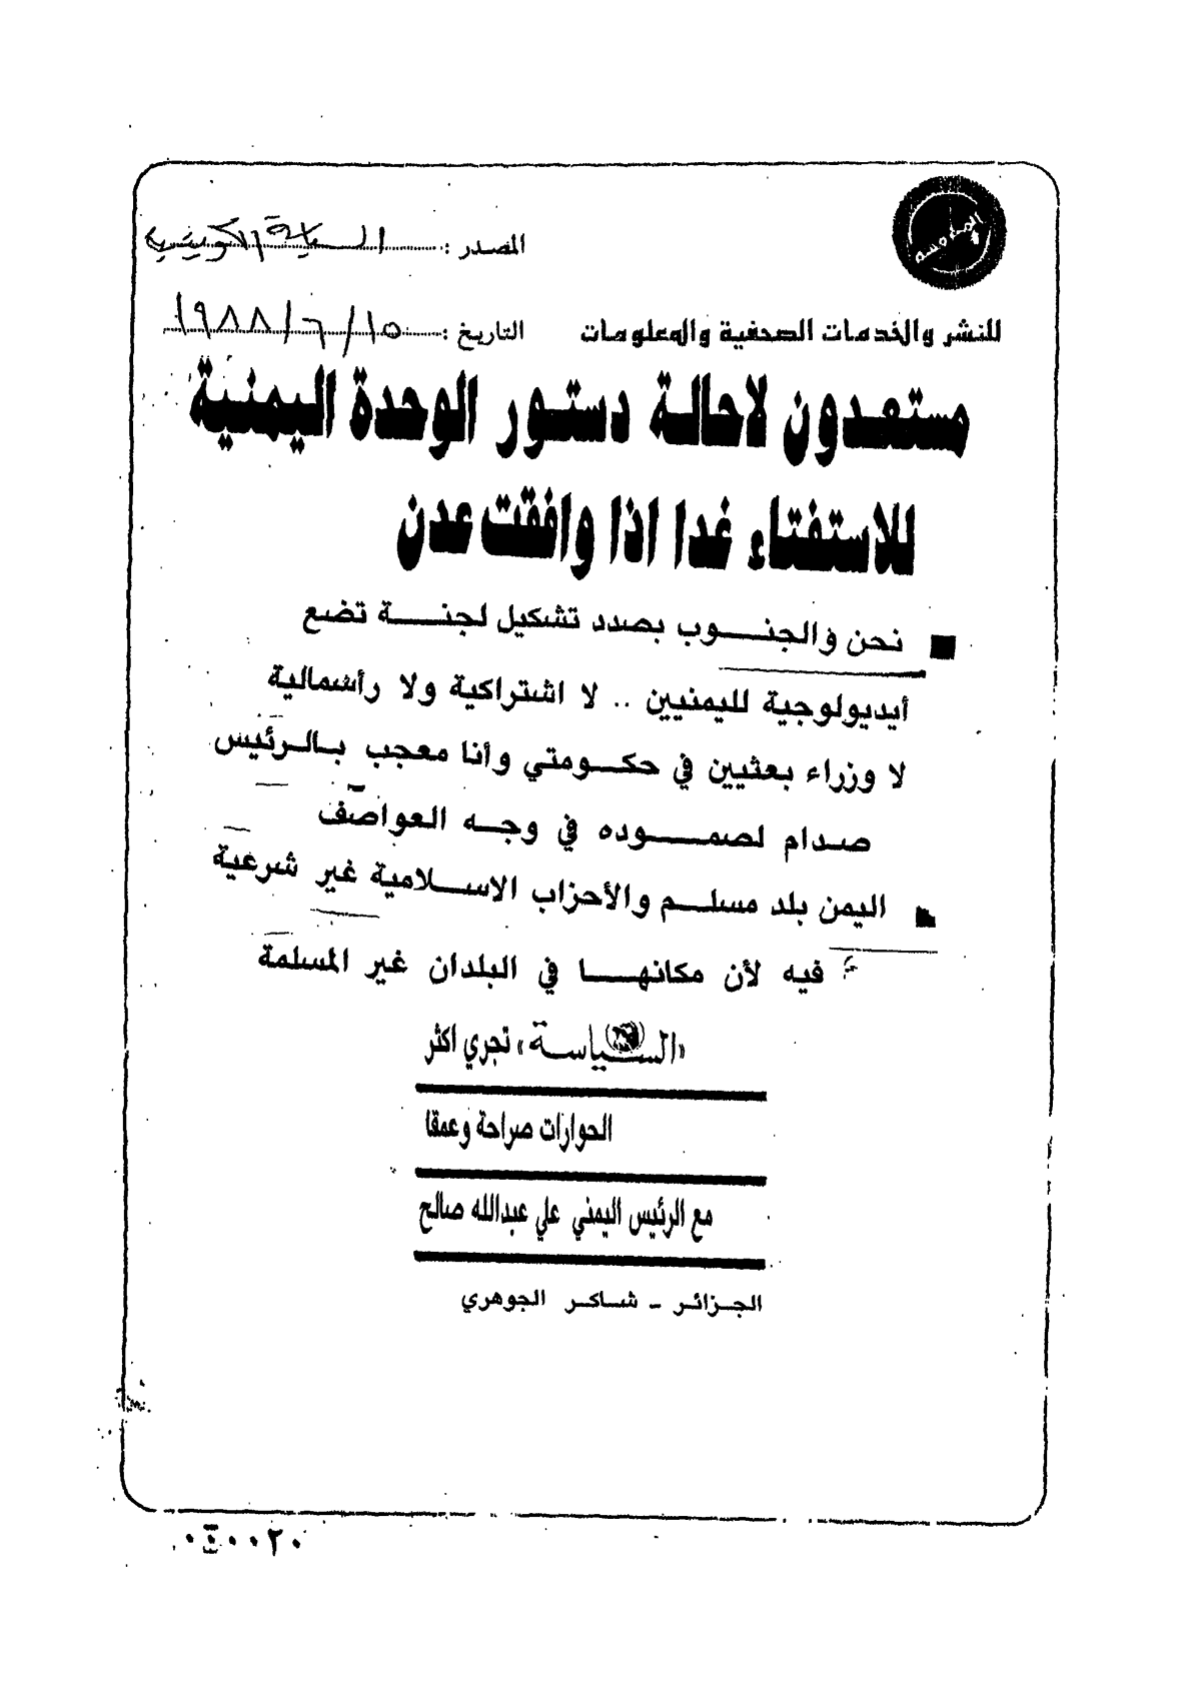 المصدر : السياسة الكويتية
للنشر والخدمات الصحفية والمعلومات
التاريخ : ١٥/٦/١٩٨٨
مستعدون لاحالة دستور الوحدة اليمنية
للاستفتاء غدا اذا وافقت عدن
■ نحن والجنوب بصدد تشكيل لجنة تضع
أيديولوجية لليمنيين .. لا اشتراكية ولا رأسمالية
لا وزراء بعثيين في حكومتي وأنا معجب بالرئيس
صدام لصموده في وجه العواصف
■ اليمن بلد مسلم والأحزاب الاسلامية غير شرعية
فيه لأن مكانها في البلدان غير المسلمة
«السياسة» تجري اكثر
الحوارات صراحة وعمقا
مع الرئيس اليمني علي عبدالله صالح
الجزائر - شاكر الجوهري